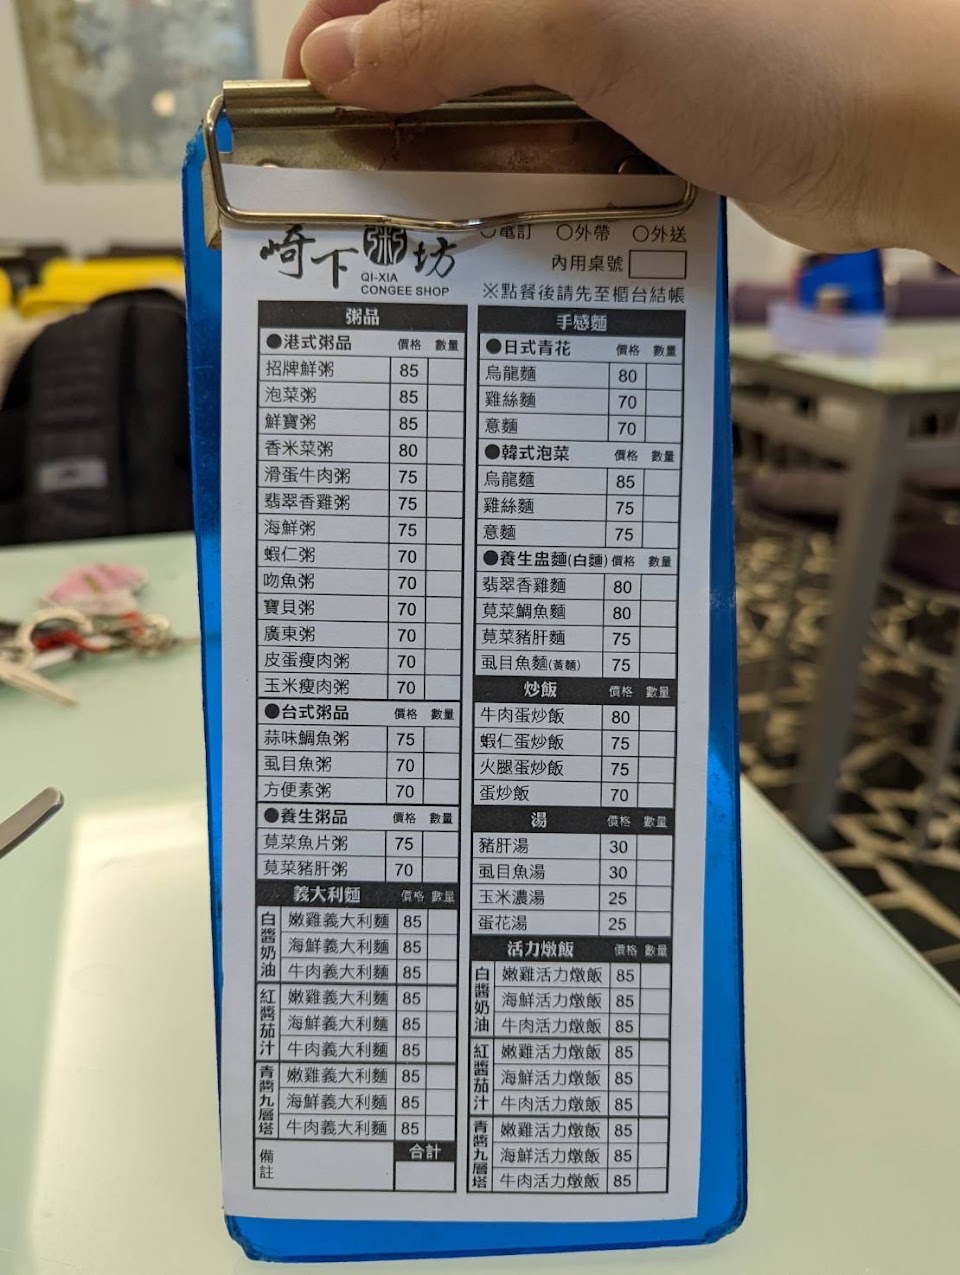 崎下粥坊
QI-XIA
CONGEE SHOP
○電訂 ○外帶 ○外送
內用桌號
※點餐後請先至櫃台結帳
粥品
●港式粥品 價格 數量
招牌鮮粥 85
泡菜粥 85
鮮寶粥 85
香米菜粥 80
滑蛋牛肉粥 75
翡翠香雞粥 75
海鮮粥 75
蝦仁粥 70
吻魚粥 70
寶貝粥 70
廣東粥 70
皮蛋瘦肉粥 70
玉米瘦肉粥 70
●台式粥品 價格 數量
蒜味鯛魚粥 75
虱目魚粥 70
方便素粥 70
●養生粥品 價格 數量
莧菜魚片粥 75
莧菜豬肝粥 70
義大利麵 價格 數量
白醬奶油
嫩雞義大利麵 85
海鮮義大利麵 85
牛肉義大利麵 85
紅醬茄汁
嫩雞義大利麵 85
海鮮義大利麵 85
牛肉義大利麵 85
青醬九層塔
嫩雞義大利麵 85
海鮮義大利麵 85
牛肉義大利麵 85
備註
合計
手感麵
●日式青花 價格 數量
烏龍麵 80
雞絲麵 70
意麵 70
●韓式泡菜 價格 數量
烏龍麵 85
雞絲麵 75
意麵 75
●養生盅麵(白麵) 價格 數量
翡翠香雞麵 80
莧菜鯛魚麵 80
莧菜豬肝麵 75
虱目魚麵(黃麵) 75
炒飯 價格 數量
牛肉蛋炒飯 80
蝦仁蛋炒飯 75
火腿蛋炒飯 75
蛋炒飯 70
湯 價格 數量
豬肝湯 30
虱目魚湯 30
玉米濃湯 25
蛋花湯 25
活力燉飯 價格 數量
白醬奶油
嫩雞活力燉飯 85
海鮮活力燉飯 85
牛肉活力燉飯 85
紅醬茄汁
嫩雞活力燉飯 85
海鮮活力燉飯 85
牛肉活力燉飯 85
青醬九層塔
嫩雞活力燉飯 85
海鮮活力燉飯 85
牛肉活力燉飯 85